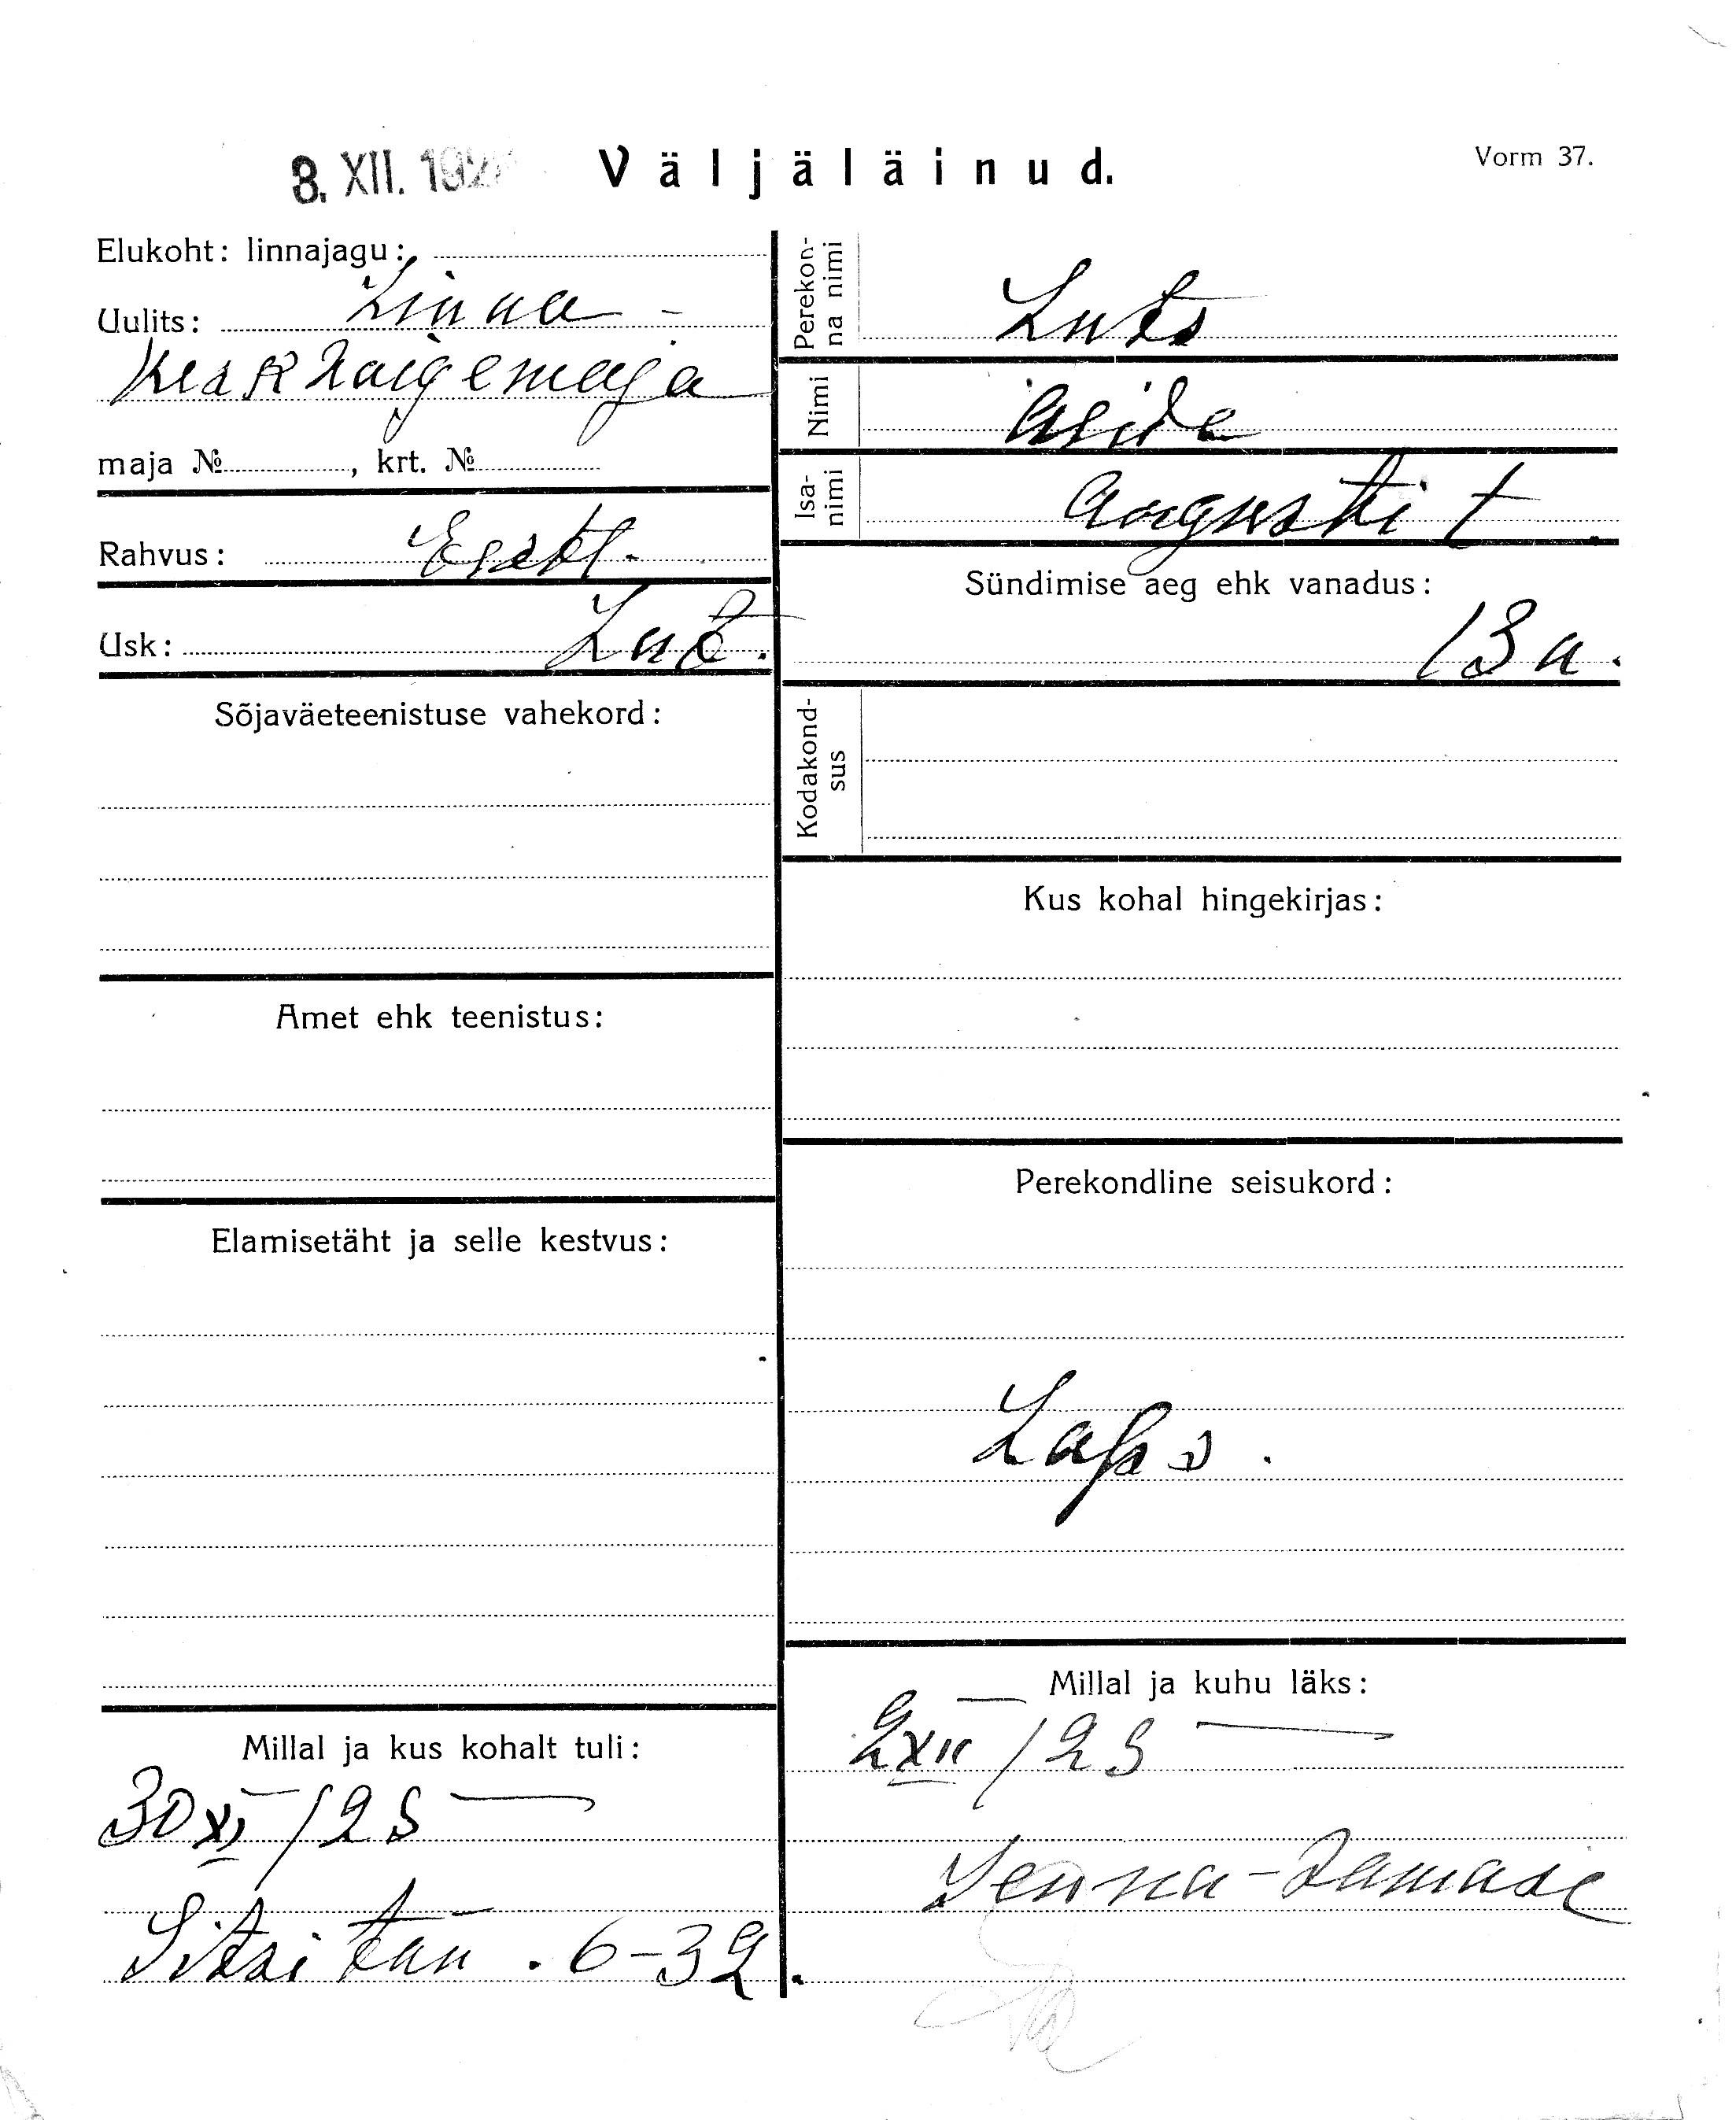 8. XII. 192
Väljäläinud.
Vorm 37.
Elukoht: linnajagu:
Uulits: Linna -
Keskhaigemaja
maja №, krt. №
Rahvus: Eestl.
Usk: Lut.
Sõjaväeteenistuse vahekord:
Amet ehk teenistus:
Elamisetäht ja selle kestvus:
Millal ja kus kohalt tuli:
30 XI / 25
Sitsi tän. 6-32.
Perekon-
na nimi
Luts
Nimi
Isa-
nimi
Augusti t
Sündimise aeg ehk vanadus:
13 a.
Kodakond-
sus
Kus kohal hingekirjas:
Perekondline seisukord:
Laps.
Millal ja kuhu läks:
2 XII / 25